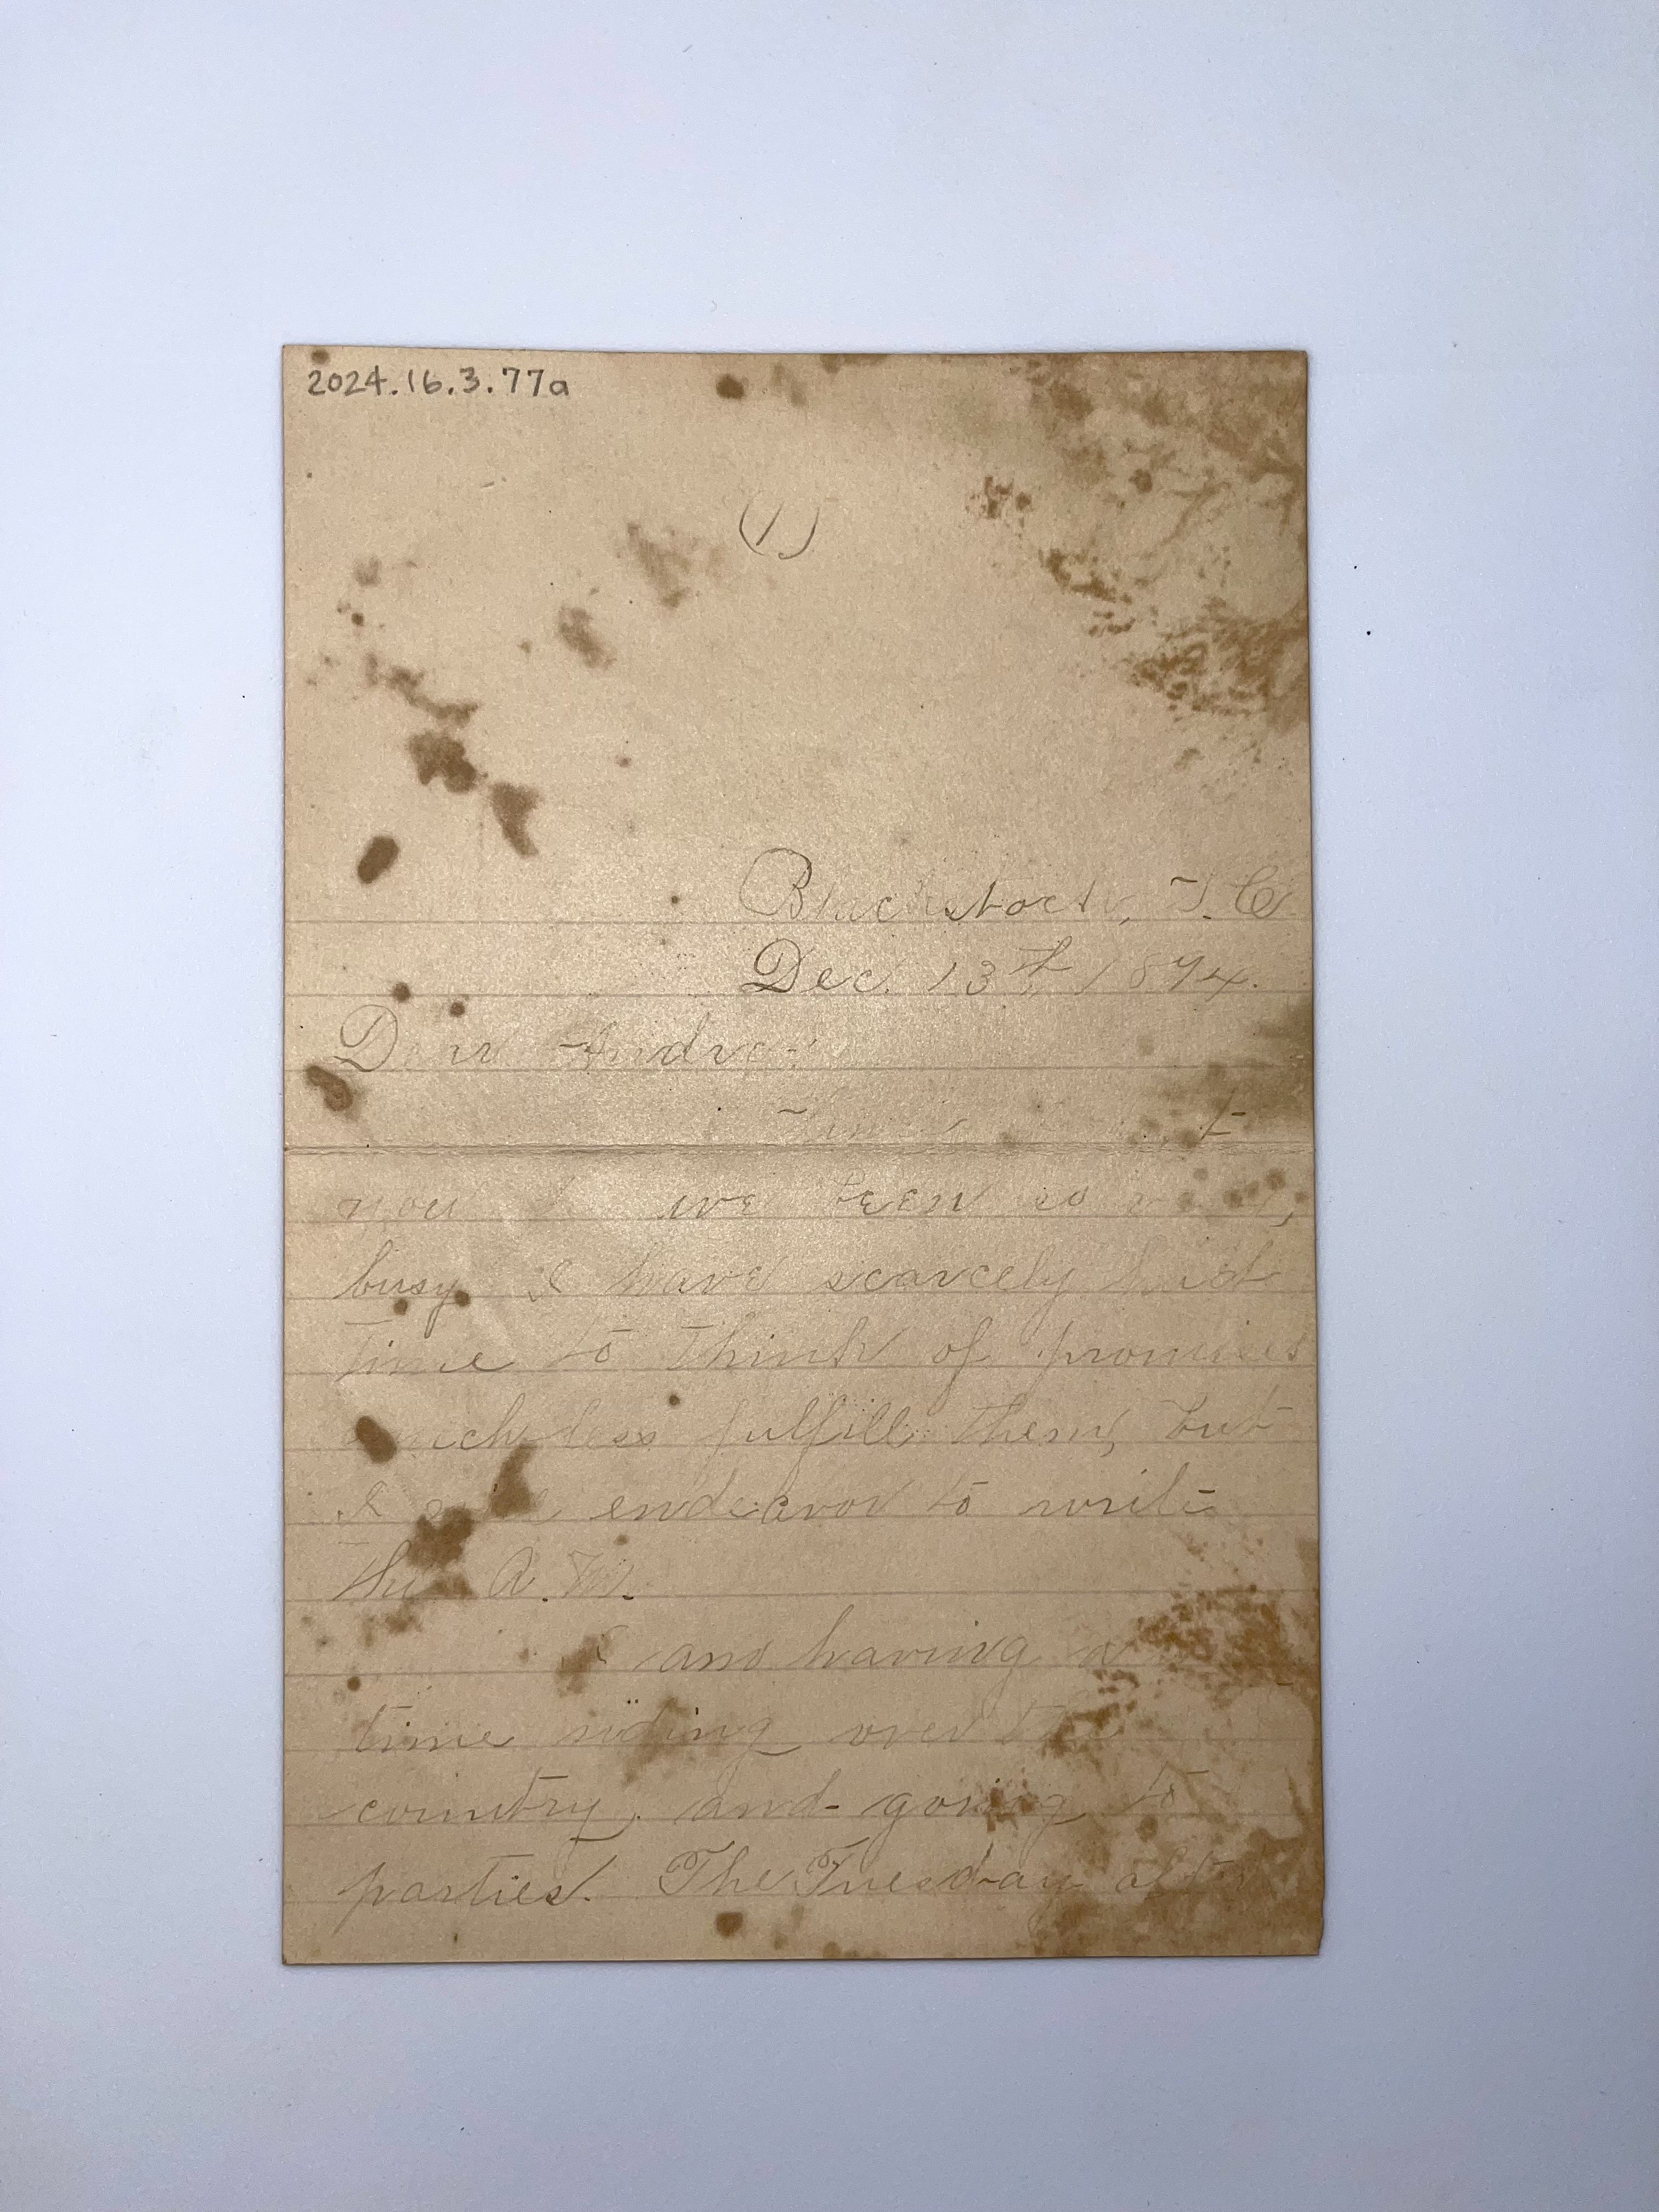 2024.16.3.77a
(1)
Blackstock, S.C.
Dec. 13th, 1894.
Dear
Since
you have been so
busy I have scarcely had
time to think of promises
much less fulfill them, but
I endeavor to write
this A.M.
I am having a
time riding over the
country, and going to
parties. The Tuesday after